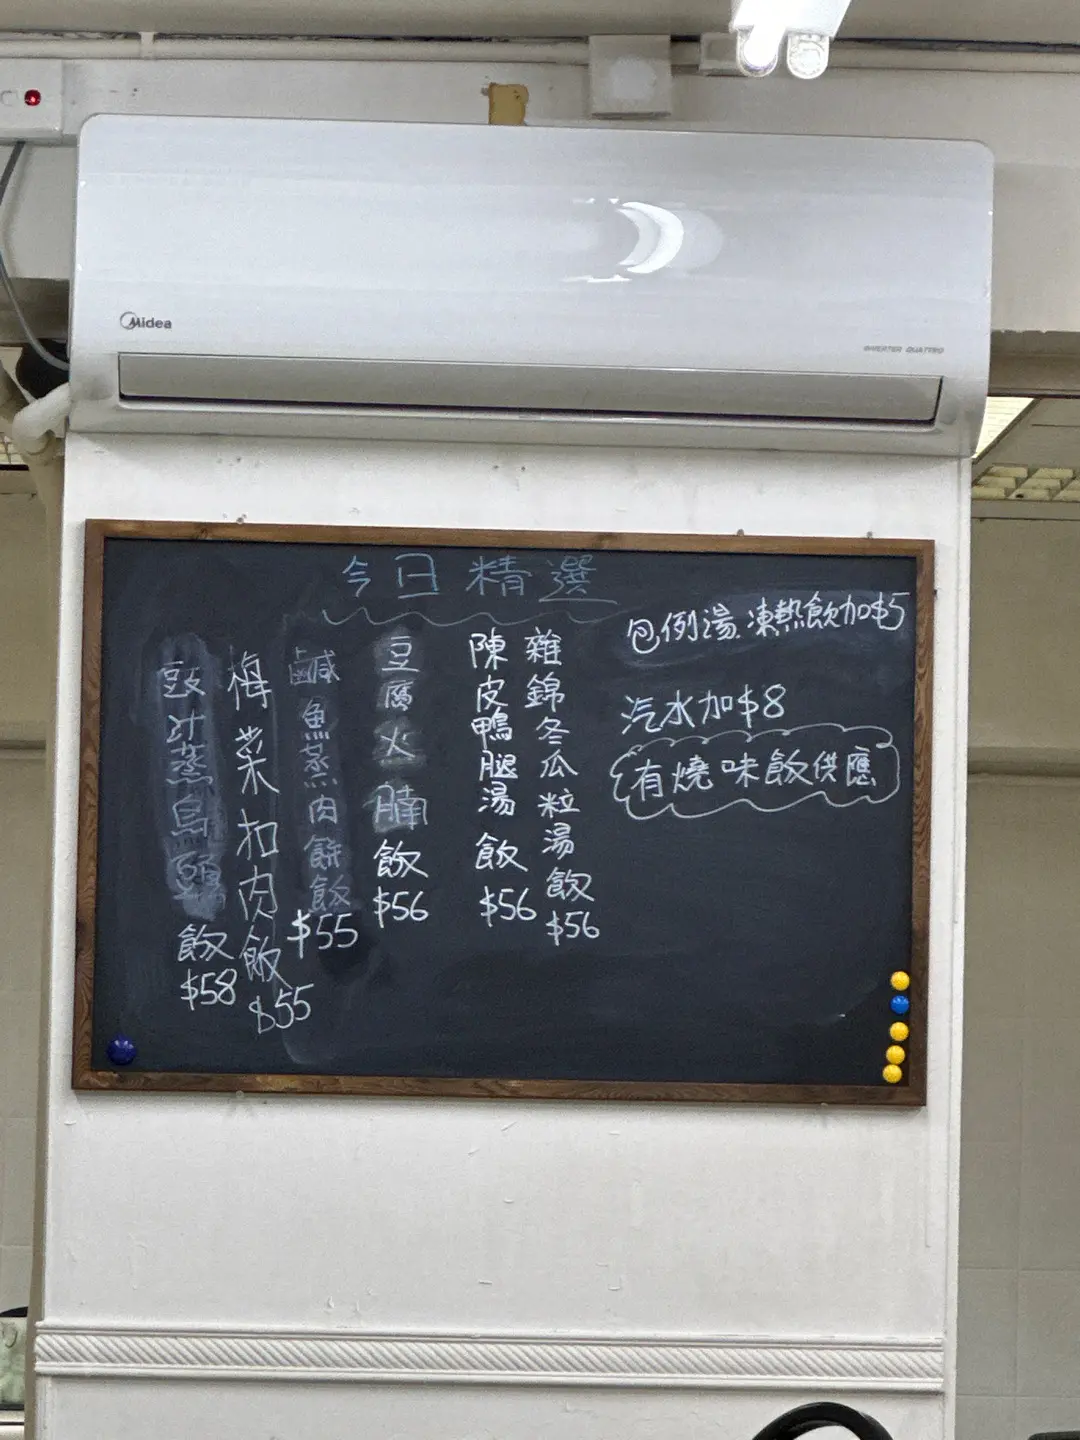 Midea
INVERTER QUATTRO
今日精選
包例湯.凍熱飲加$5
汽水加$8
有燒味飯供應
雜錦冬瓜粒湯飯$56
陳皮鴨腿湯飯$56
豆腐火腩飯$56
鹹魚蒸肉餅飯$55
梅菜扣肉飯$55
豉汁蒸烏頭飯$58